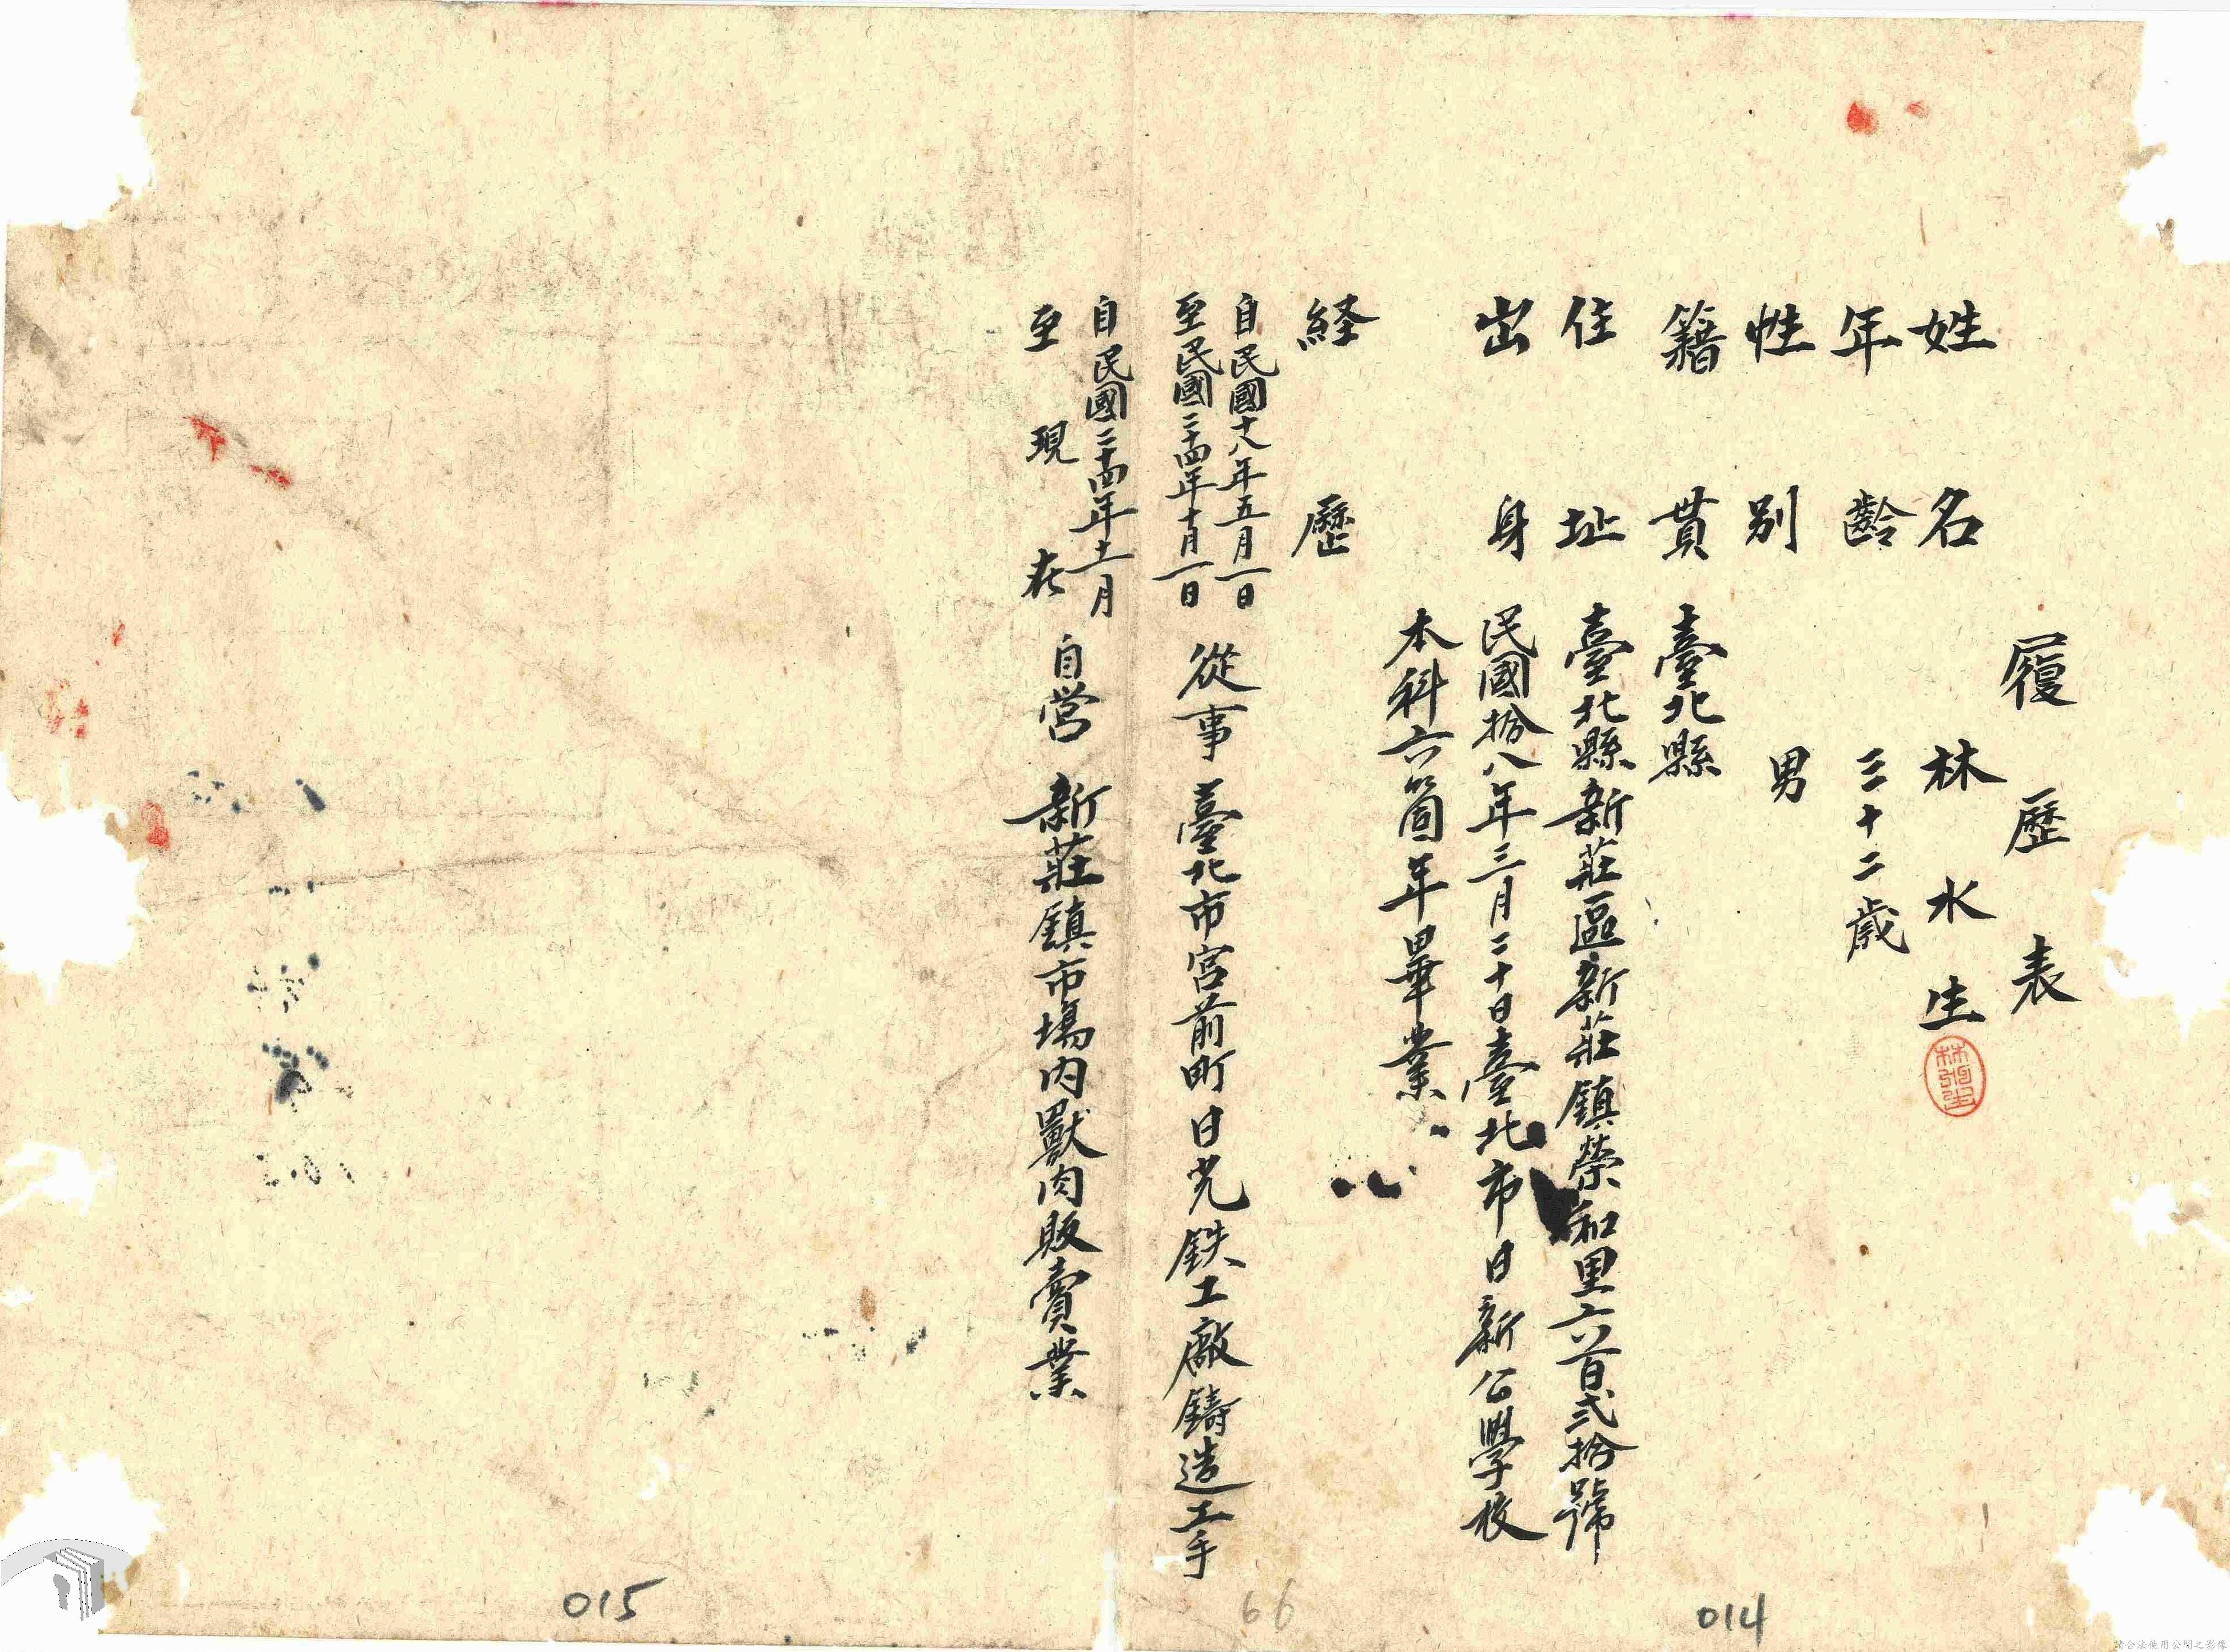 履歷表
姓名 林水生
年齡 三十二歲
性別 男
籍貫 臺北縣
住址 臺北縣新莊區新莊鎮榮和里六百弍拾號
出身 民國拾八年三月三十日臺北市日新公學校
本科六箇年畢業
経歷
自民國十八年五月一日
至民國三十四年十月一日
從事 臺北市宮前町日光鉄工廠鑄造工手
自民國三十四年十一月
至現在
自営 新莊鎮市場内獸肉販賣業
014
66
015
請合法使用公開之影像